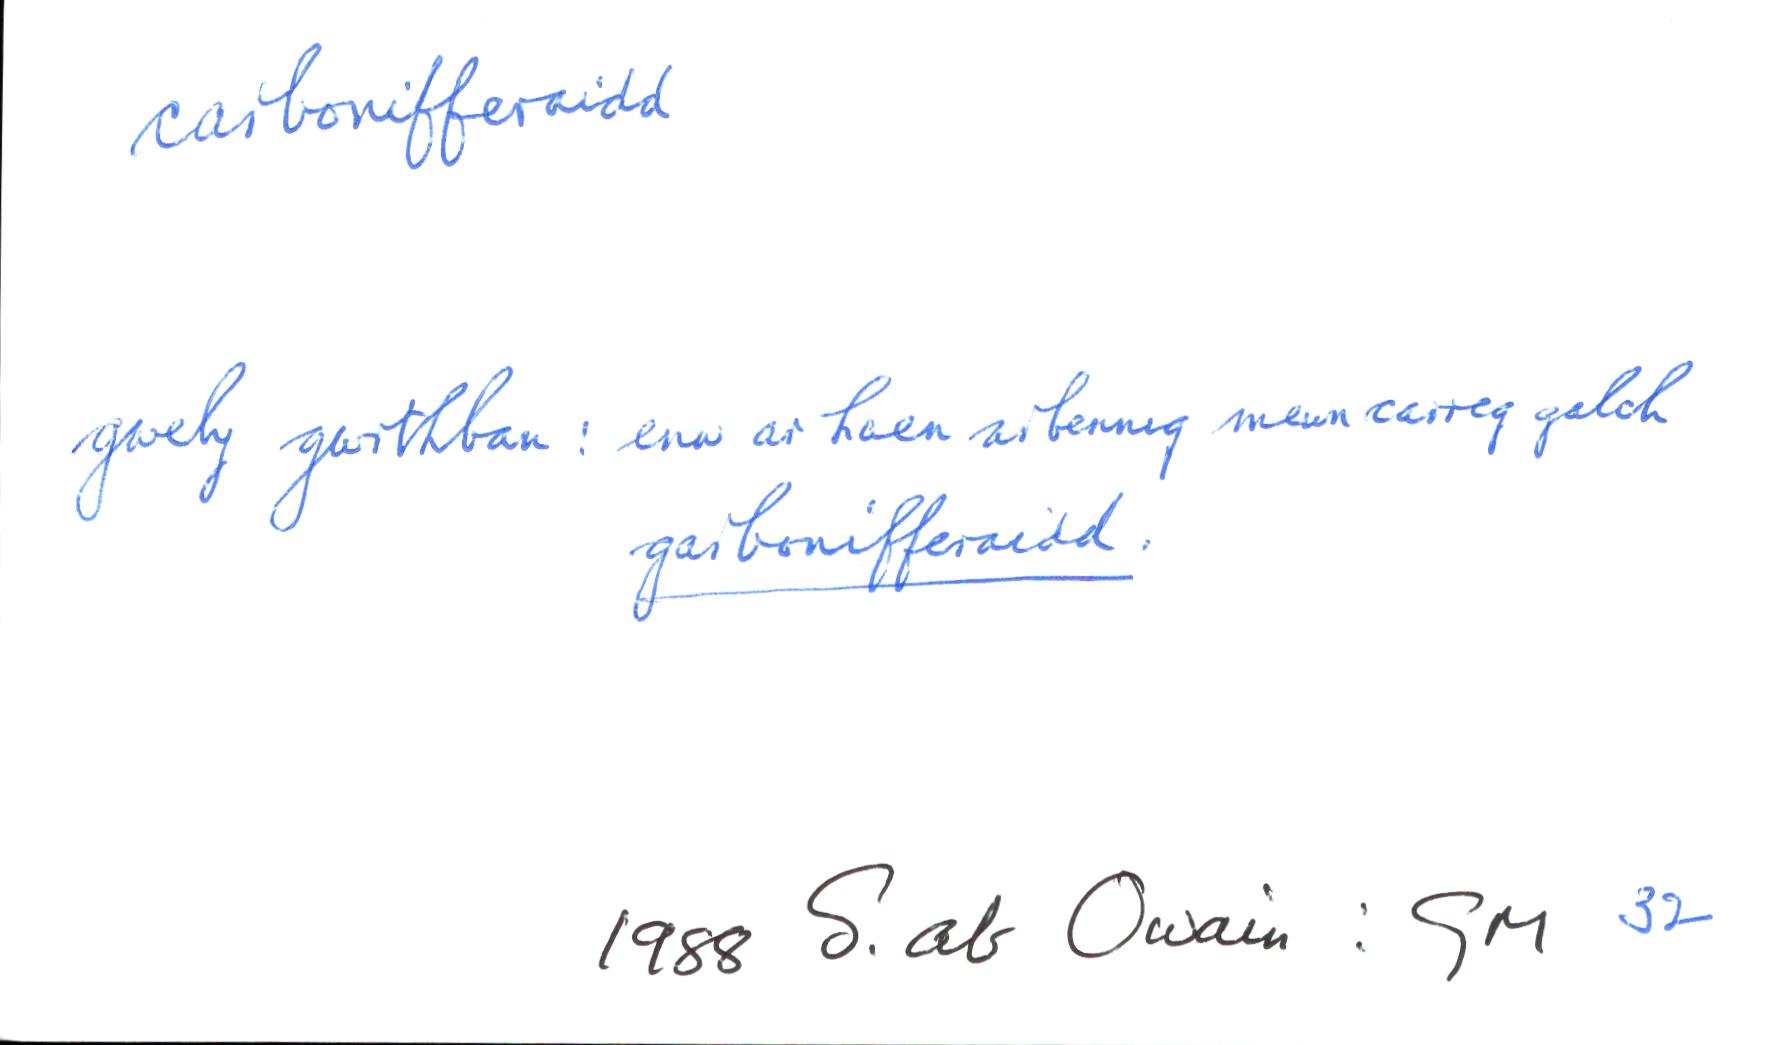 carbonifferaidd
gwely gwrthban : enw ar haen arbennig mewn carreg galch
garbonifferaidd.
1988 S. ab Owain : GM 32